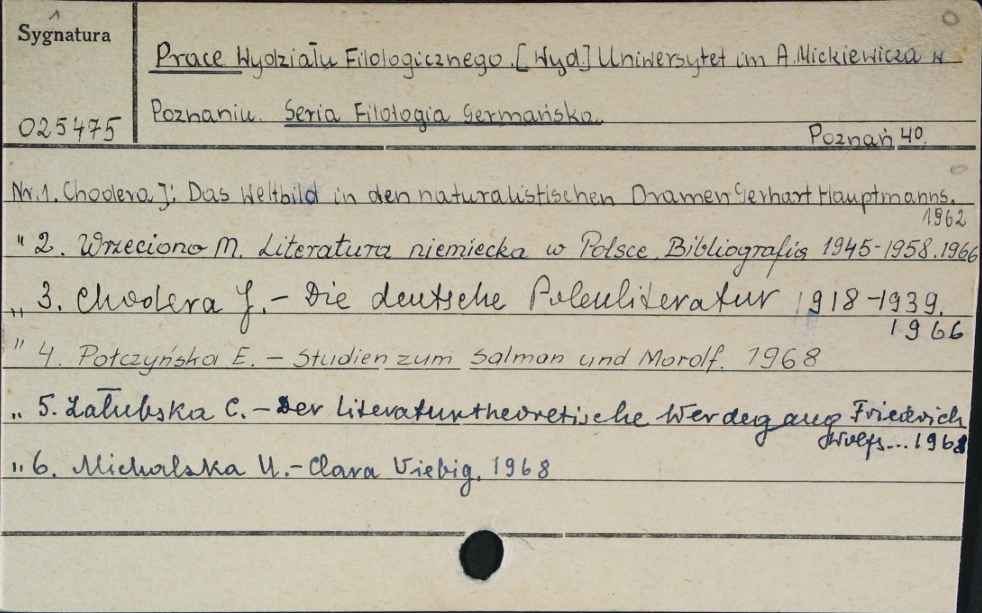 Sygnatura
025475
Prace Wydziału Filologicznego. [Wyd.] Uniwersytet im A. Mickiewicza w
Poznaniu. Seria Filologia Germańska.
Poznań 40.
Nr. 1. Chodera J: Das Weltbild in den naturalistischen Dramen Gerhart Hauptmanns.
1962
" 2. Wrzeciono M. Literatura niemiecka w Polsce. Bibliografia 1945-1958. 1966
„ 3. Chodera J. - Die deutsche Polenliteratur 1918-1939.
1966
" 4. Połczyńska E. - Studien zum Salman und Morolf. 1968
„ 5. Załubska C. - Der literaturtheoretische Werdegang Friedrich
Wolfs... 1968
„ 6. Michalska U. - Clara Viebig. 1968